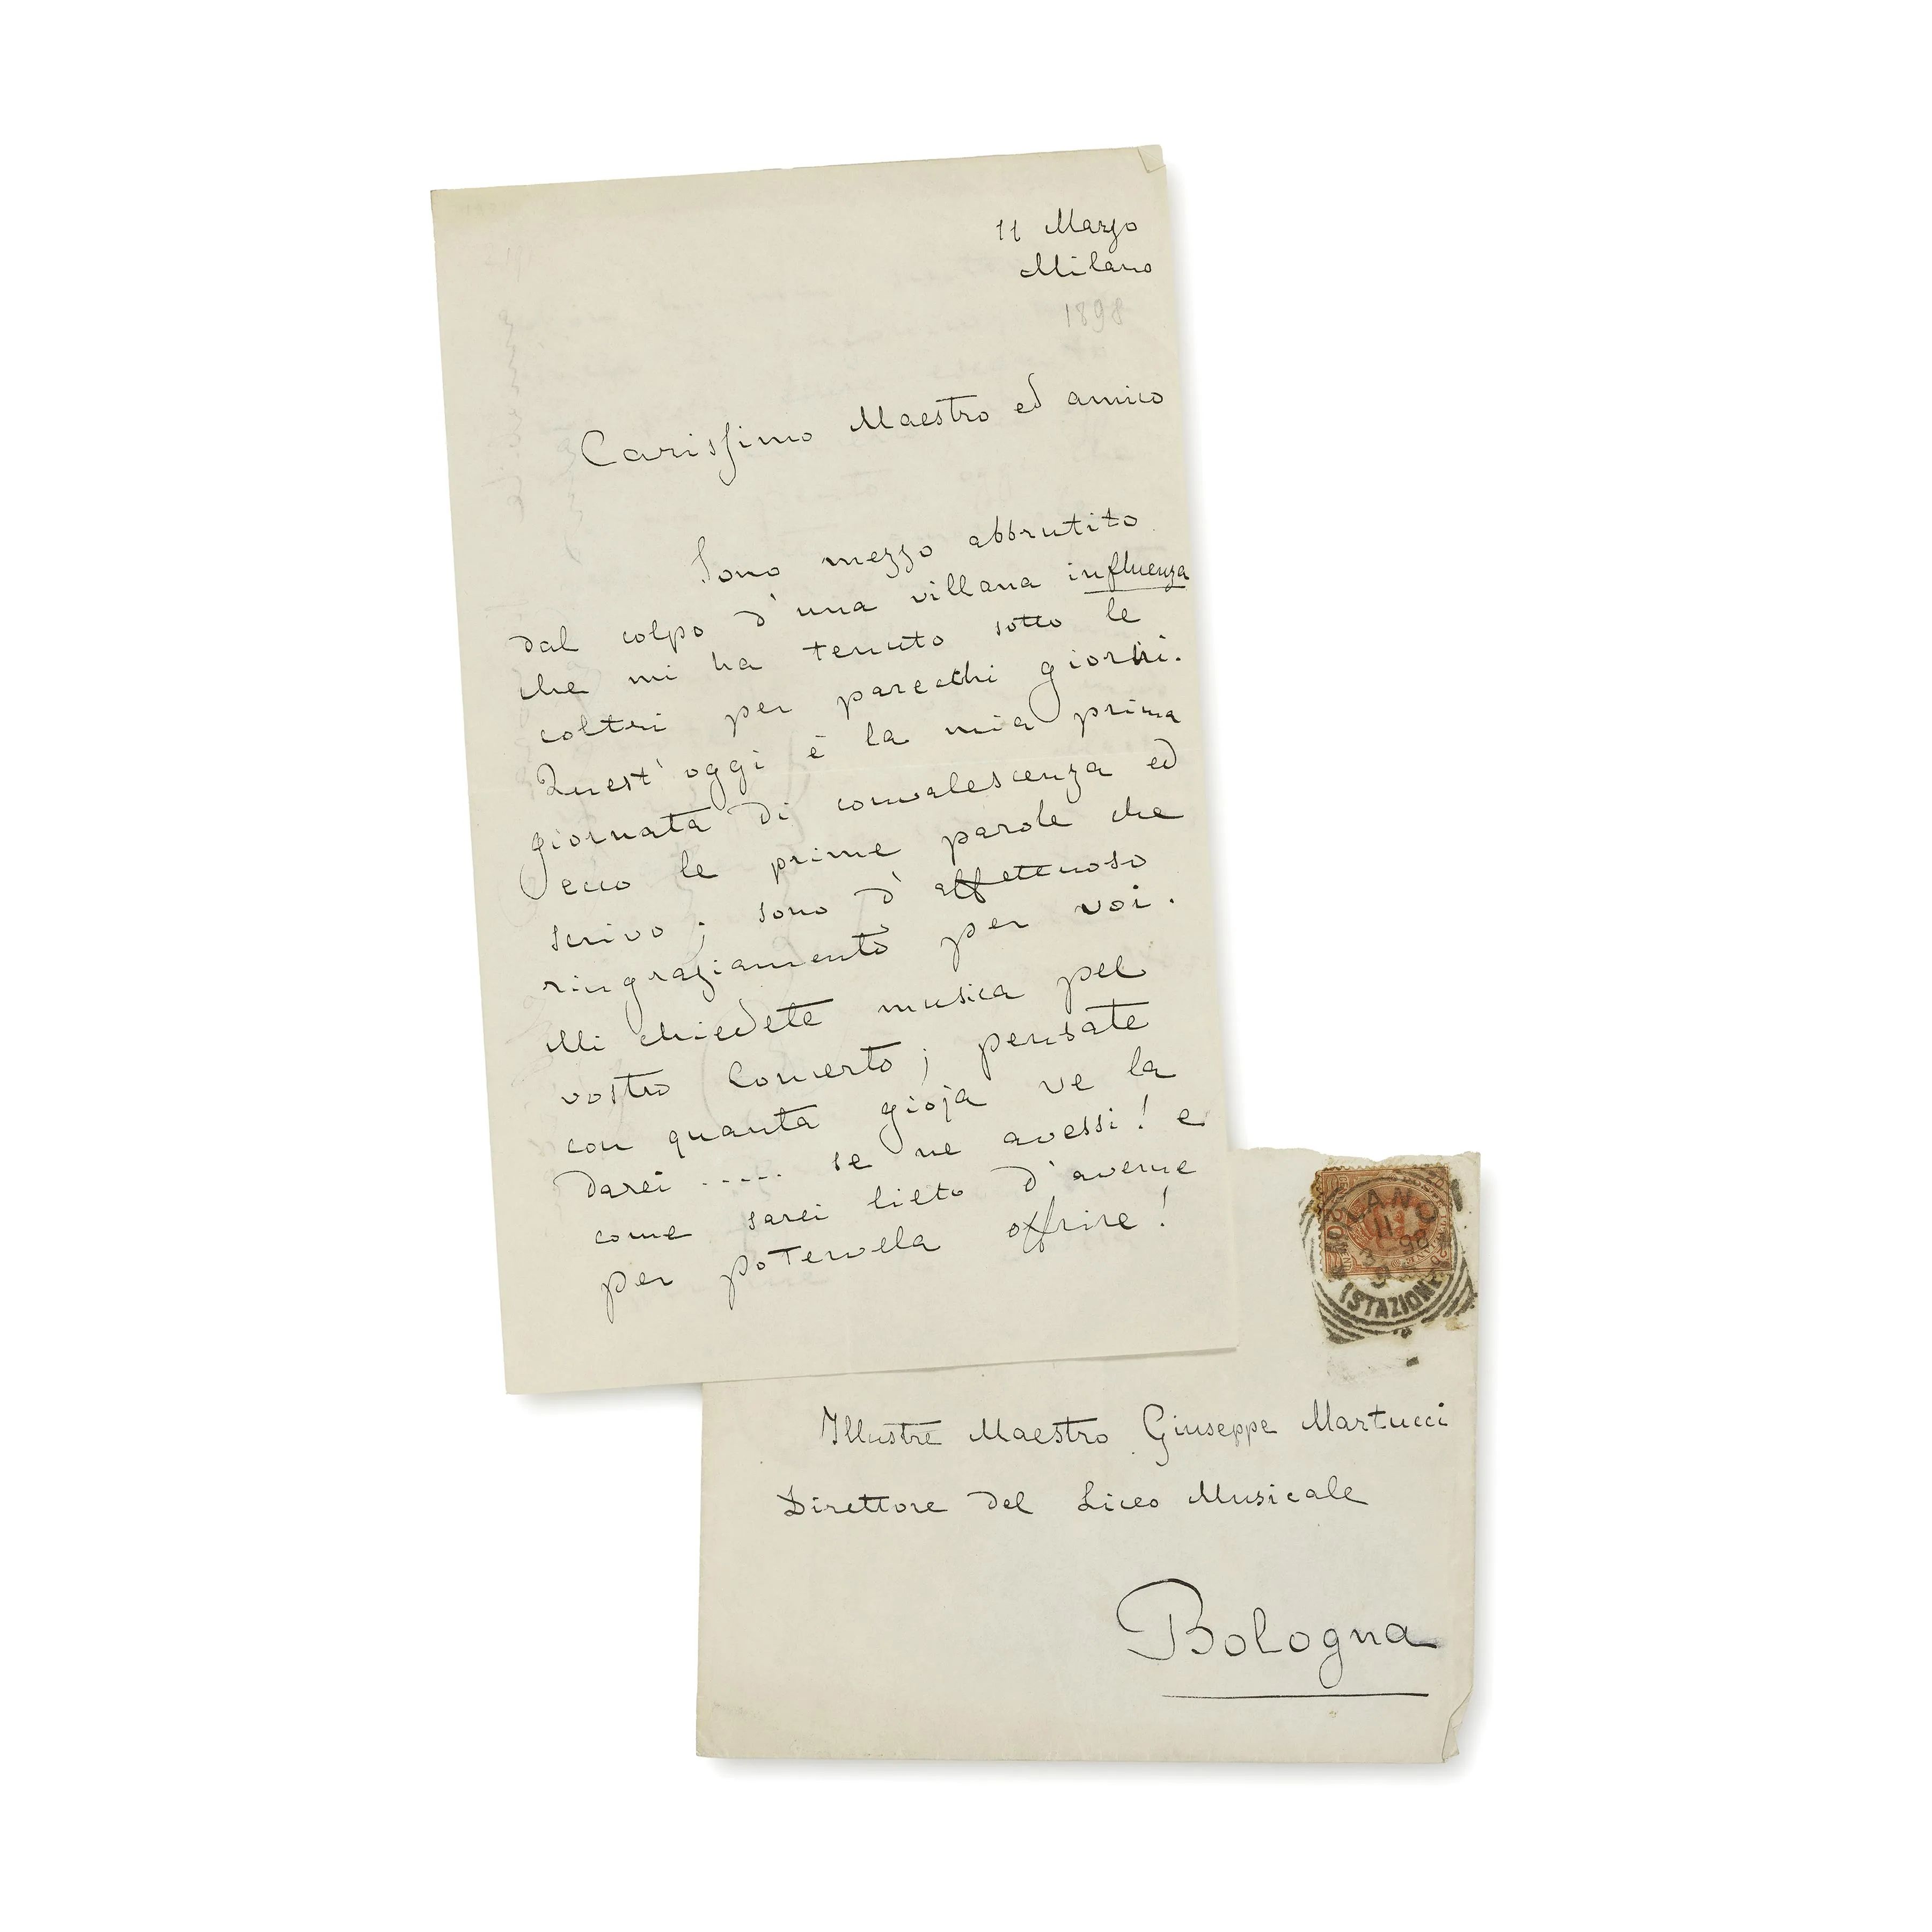 11 Marzo
Milano
1898
Carissimo Maestro ed amico
Sono mezzo abbrutito
dal colpo d'una villana influenza
che mi ha tenuto sotto le
coltri per parecchi giorni.
Quest'oggi è la mia prima
giornata di convalescenza ed
ecco le prime parole che
scrivo; sono d'affettuoso
ringraziamento per voi.
Mi chiedete musica pel
vostro Concerto; pensate
con quanta gioja ve la
darei ..... se ne avessi! e
come sarei lieto d'averne
per potervela offrire!
LANO
11
3 98
STAZIONE
Illustre Maestro Giuseppe Martucci
Direttore del Liceo Musicale
Bologna